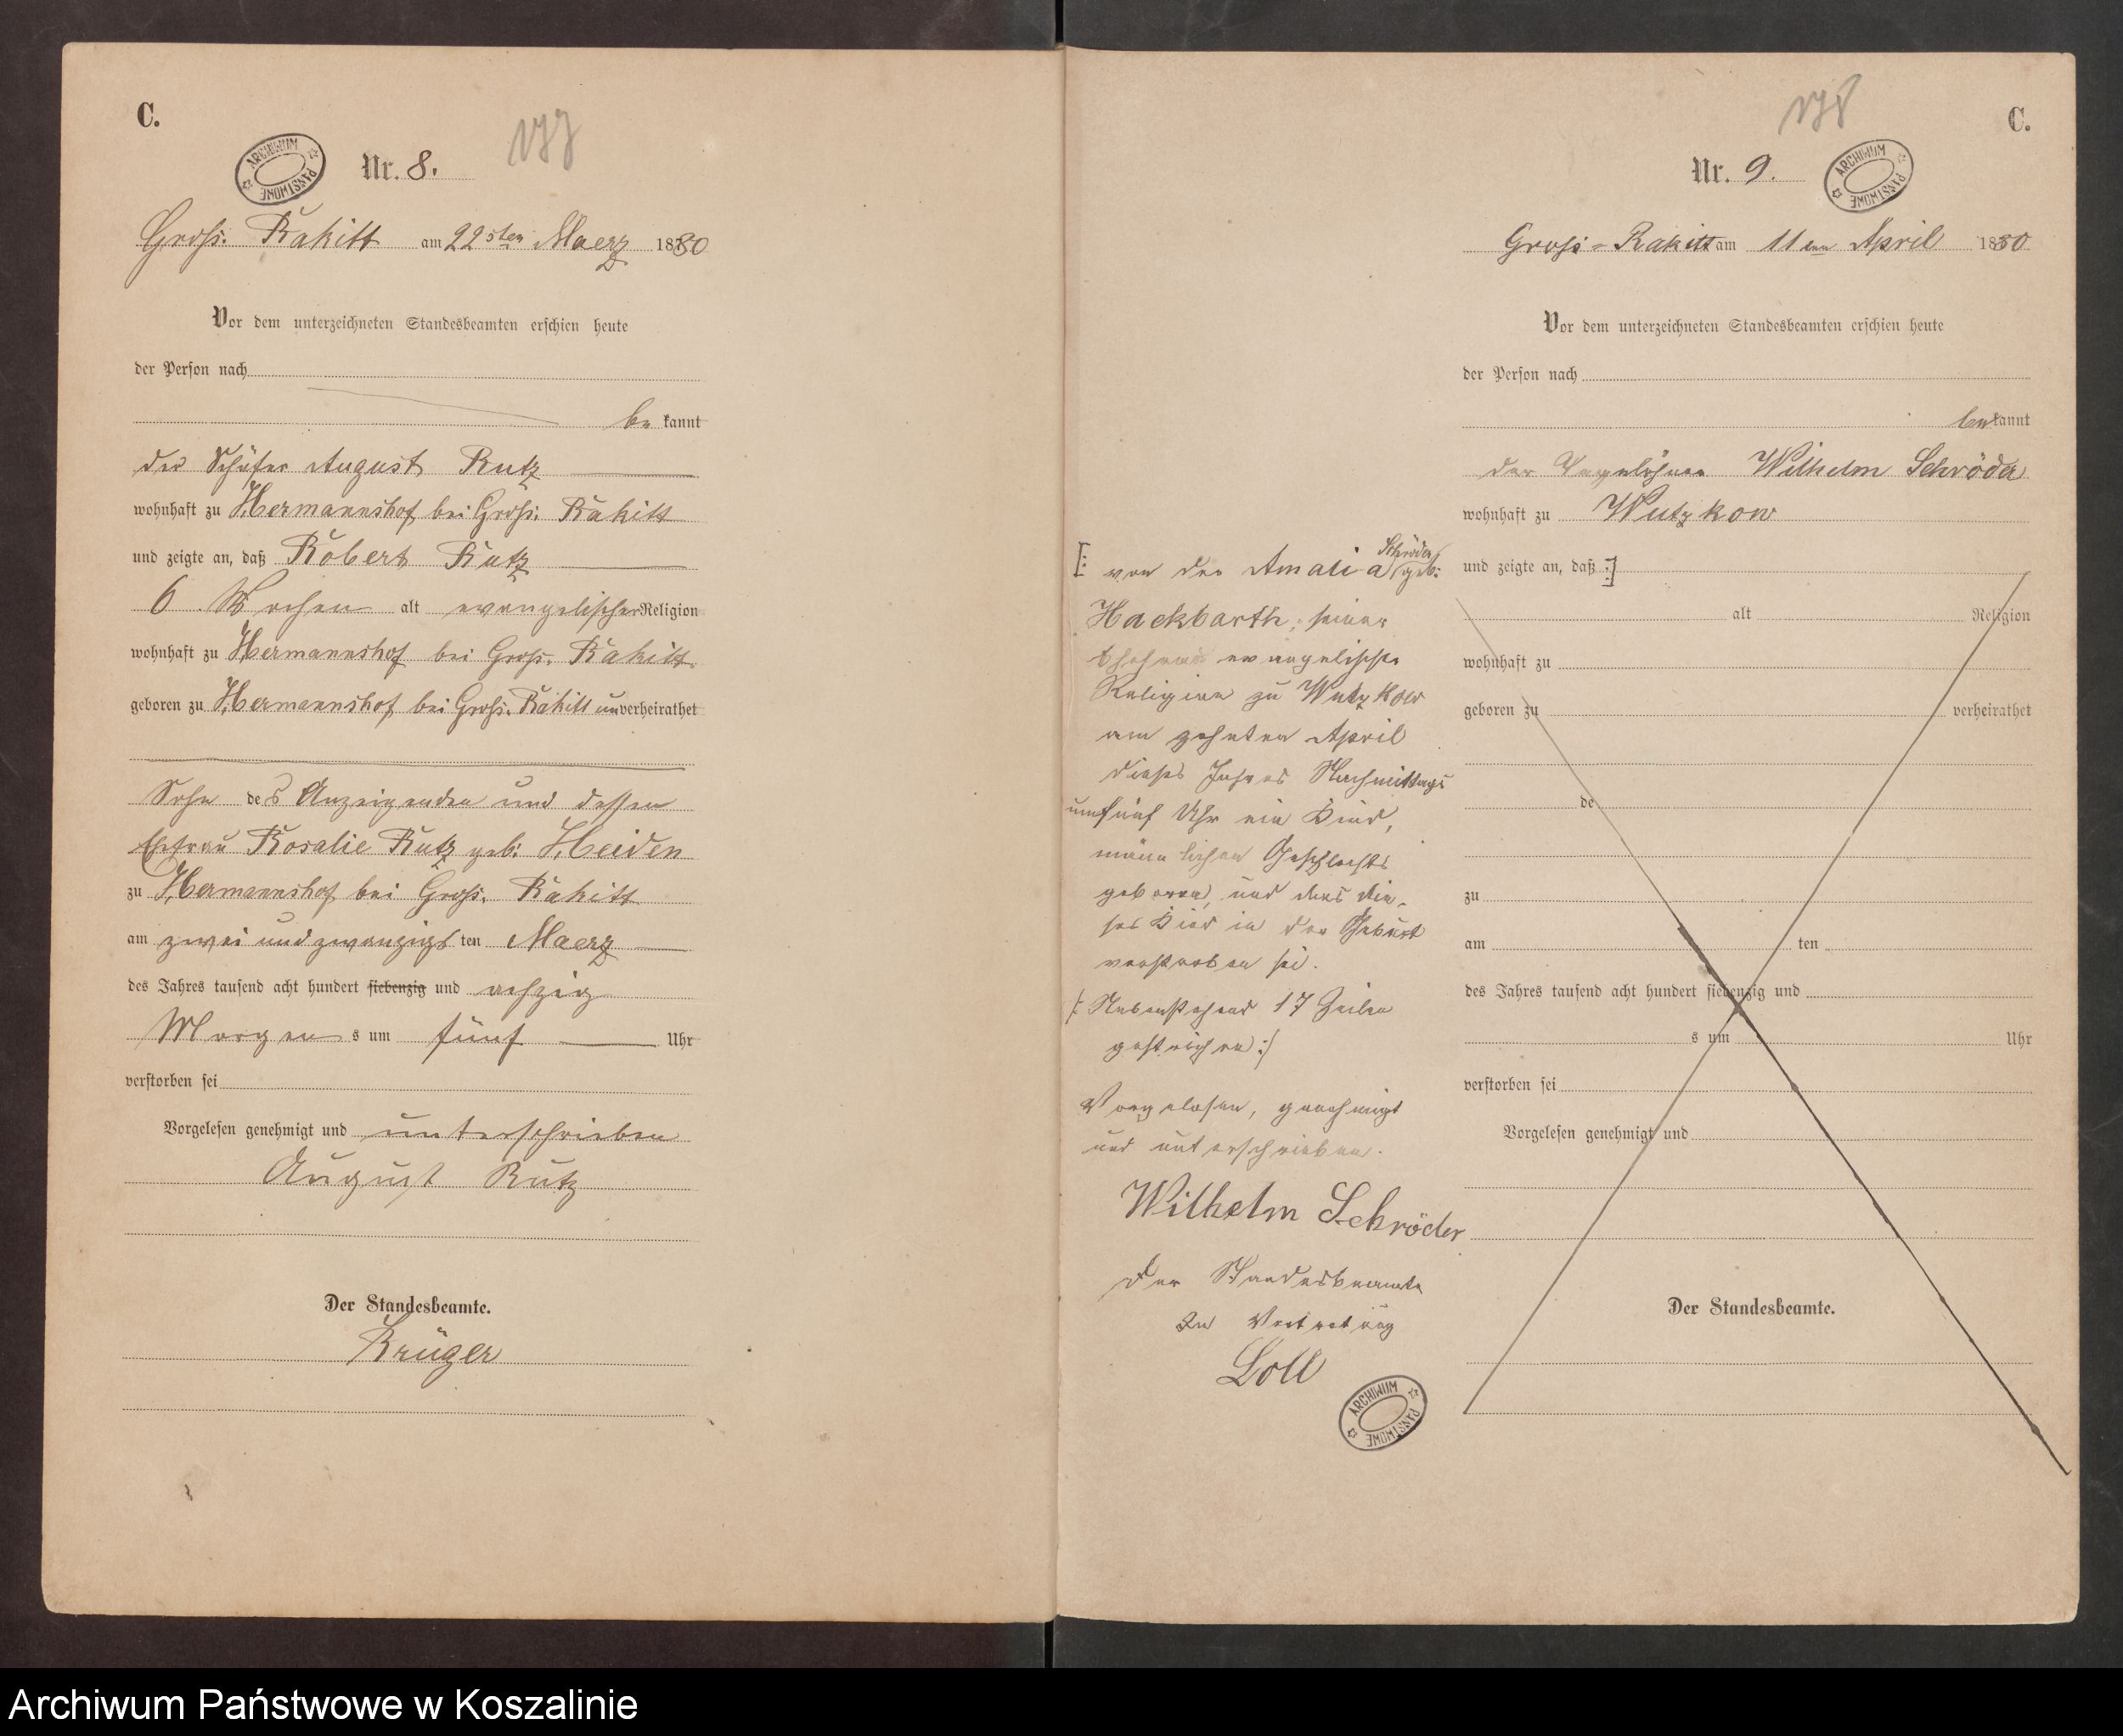 C.
177
ARCHIWUM PAŃSTWOWE
Nr. 8.
Gross. Rakitt am 22sten Maerz 1880
Vor dem unterzeichneten Standesbeamten erschien heute
der Person nach
be kannt
der Schäfer August Rutz
wohnhaft zu Hermannshof bei Gross. Rakitt
und zeigte an, daß Robert Rutz
6 Wochen alt evangelischer Religion
wohnhaft zu Hermannshof bei Gross. Rakitt.
geboren zu Hermannshof bei Gross. Rakitt unverheirathet
Sohn des Anzeigenden und dessen
Ehefrau Rosalie Rutz geb: Heiden
zu Hermannshof bei Gross. Rakitt
am zwei und zwanzigsten Maerz
des Jahres tausend acht hundert siebenzig und achzig
Morgens um fünf Uhr
verstorben sei
Vorgelesen genehmigt und unterschrieben
August Rutz
Der Standesbeamte.
Krüger
178
C.
Nr. 9.
ARCHIWUM PAŃSTWOWE
Gross-Rakitt am 11ten April 1880
Vor dem unterzeichneten Standesbeamten erschien heute
der Person nach
bekannt
der Tagelöhner Wilhelm Schröder
wohnhaft zu Wutzkow
und zeigte an, daß :]
alt Religion
wohnhaft zu
geboren zu verheirathet
de
zu
am ten
des Jahres tausend acht hundert siebenzig und
s um Uhr
verstorben sei
Vorgelesen genehmigt und
Der Standesbeamte.
[: von der Amalia Schröder geb:
Hackbarth, seiner
Ehefrau evangelischer
Religion zu Wutzkow
am zehnten April
dieses Jahres Nachmittags
um fünf Uhr ein Kind,
männlichen Geschlechts
geboren, und dass die-
ses Kind in der Geburt
verstorben sei.
/: Nebenstehend 17 Zeilen
gestrichen :/
Vorgelesen, genehmigt
und unterschrieben.
Wilhelm Schröder
Der Standesbeamte
In Vertretung
Loll
ARCHIWUM PAŃSTWOWE
Archiwum Państwowe w Koszalinie